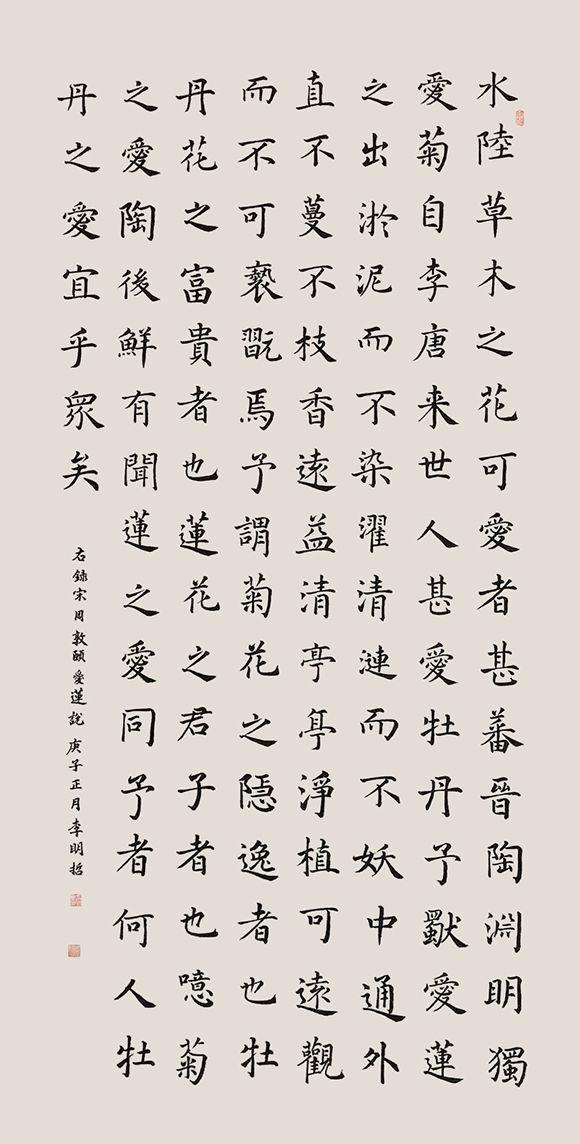 水陸草木之花可愛者甚蕃晉陶淵明獨
愛菊自李唐来世人甚愛牡丹予獨愛蓮
之出淤泥而不染濯清漣而不妖中通外
直不蔓不枝香遠益清亭亭淨植可遠觀
而不可褻翫焉予謂菊花之隠逸者也牡
丹花之富貴者也蓮花之君子者也噫菊
之愛陶後鮮有聞蓮之愛同予者何人牡
丹之愛宜乎眾矣
右錄宋周敦頤愛蓮説 庚子正月李明哲